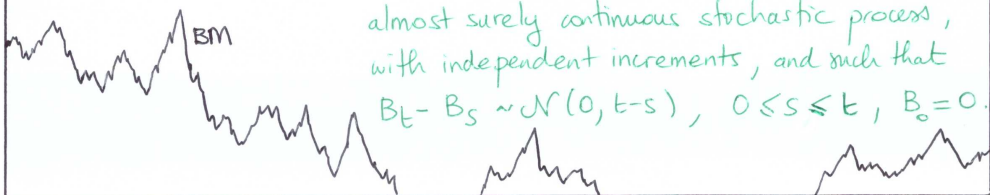 BM
almost surely continuous stochastic process,
with independent increments, and such that
Bₜ - Bₛ ~ N(0, t-s), 0 ≤ s ≤ t, B₀ = 0.